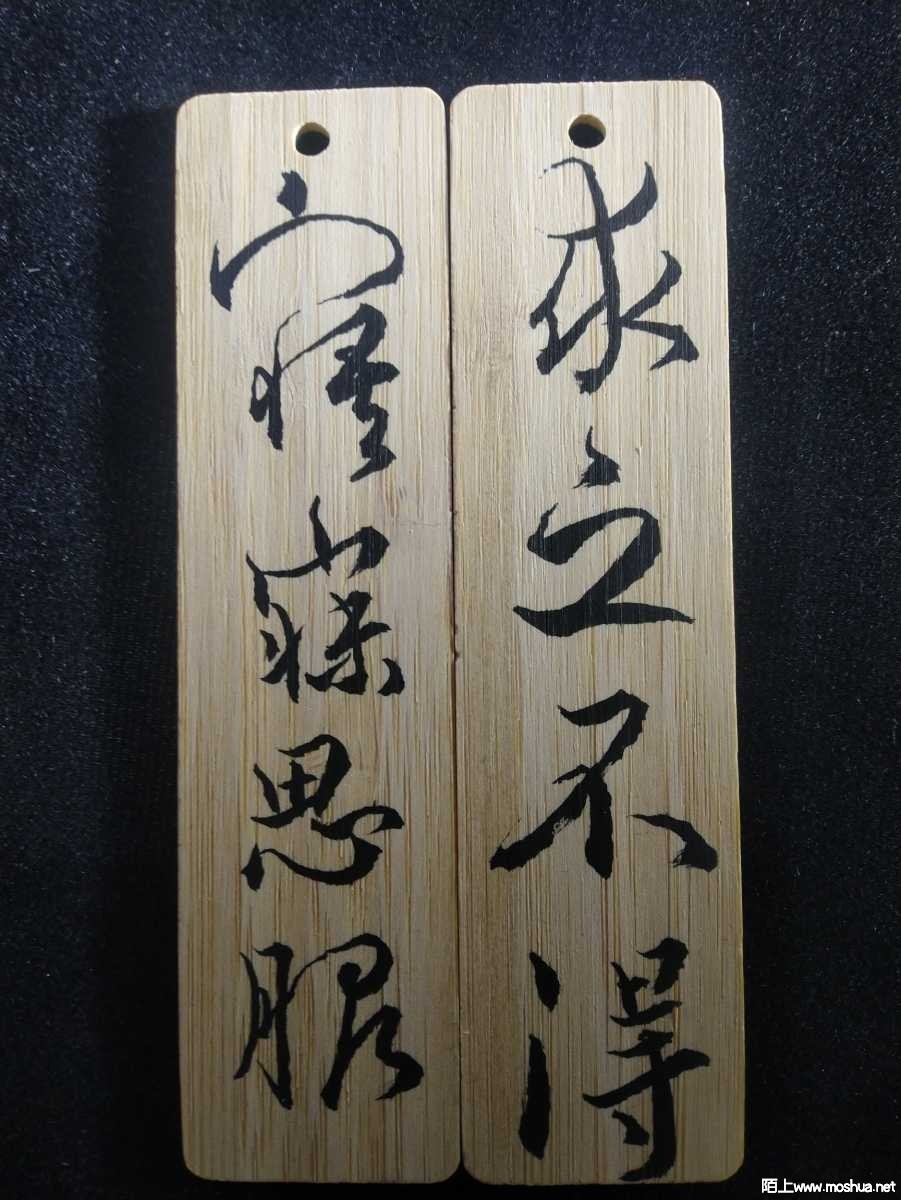 求之不得
寤寐思服
陌上www.moshua.net